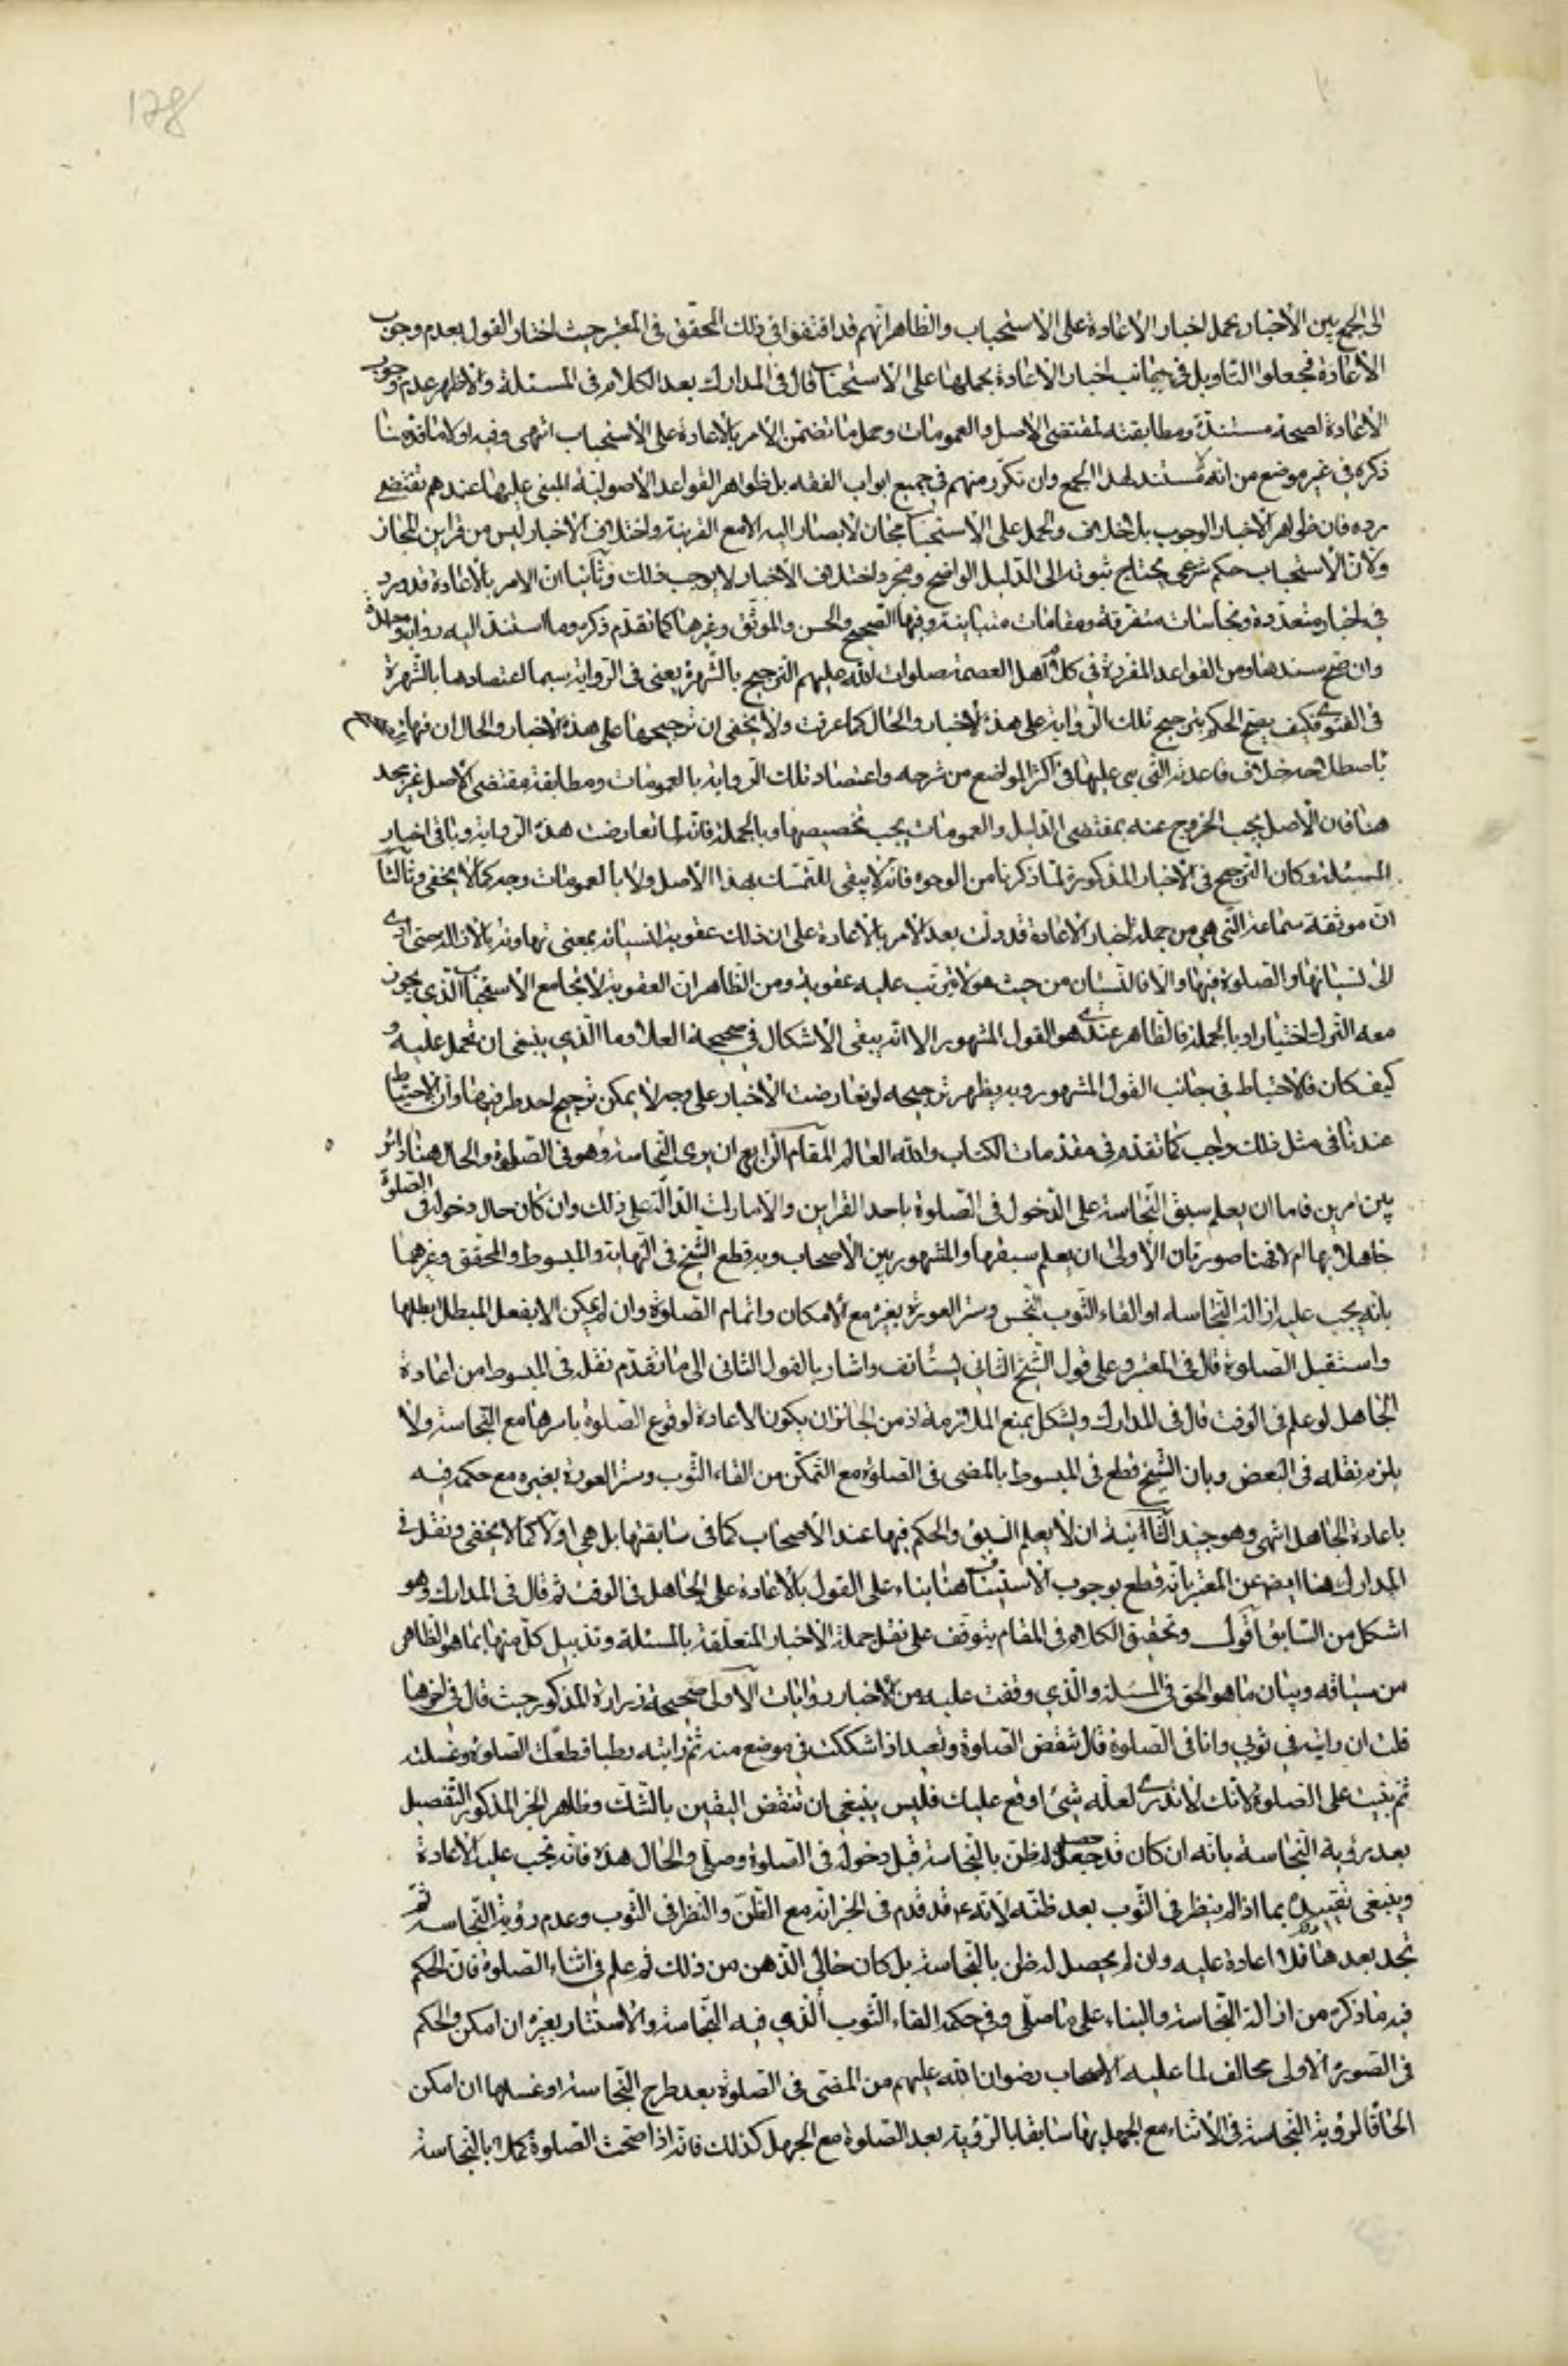 178
الى الجمع بين الأخبار بحمل اخبار الاعادة على الاستحباب والظاهر انهم قد اقتفوا في ذلك المحقق في المعتبر حيث اختار القول بعدم وجوب
الاعادة فجعلوا التاويل في جانب اخبار الاعادة بحملها على الاستحباب قال في المدارك بعد الكلام في المسئلة والاظهر عدم وجوب
الاعادة لصحة مستنده ومطابقته لمقتضى الاصل والعمومات وحمل ما تضمن الامر بالاعادة على الاستحباب انتهى وفيه اولا ما قدمنا
ذكره في غير موضع من انه لا مستند لهذا الجمع وان تكرر منهم في جميع ابواب الفقه بل ظواهر القواعد الاصولية المبنى عليها عندهم تقتضي
رده فان ظواهر الاخبار الوجوب بلا خلاف والحمل على الاستحباب مجاز لا يصار اليه الا مع القرينة واختلاف الاخبار ليس من قراين المجاز
ولان الاستحباب حكم شرعي يحتاج ثبوته الى الدليل الواضح ومجرد اختلاف الاخبار لا يوجب ذلك وثانيا ان الامر بالاعادة قد ورد
في اخبار متعددة ونجاسات متفرقة ومقامات متباينة وفيها الصحيح والحسن والموثق وغيرها كما تقدم ذكره وما استند اليه رواية واحدة
وان صح سندها ومن القواعد المقررة في كلام اهل العصمة صلوات الله عليهم الترجيح بالشهرة يعني في الرواية سيما اعتضادها بالشهرة
في الفتوى فكيف يصح الحكم بترجيح تلك الرواية على هذه الاخبار والحال كما عرفت ولا يخفى ان ترجيحها على هذه الاخبار والحال ان فيها
باصطلاحه خلاف قاعدته التي بنى عليها في اكثر المواضع من شرحه واعتضاد تلك الرواية بالعمومات ومطابقة مقتضى الاصل غير مجد
هنا فان الاصل يجب الخروج عنه بمقتضى الدليل والعمومات يجب تخصيصها وبالجملة فانه لما تعارضت هذه الرواية وباقي اخبار
المسئلة وكان الترجيح في الاخبار المذكورة لما ذكرنا من الوجوه فانه لا يبقى للتمسك بهذا الاصل ولا بالعمومات وجه كما لا يخفى وثالثا
ان موثقة سماعة التي هي من جملة اخبار الاعادة قد دلت بعد الامر بالاعادة على ان ذلك عقوبة لنسيانه بمعنى تهاونه بالازالة حتى ادى
الى نسيانها والصلوة فيها والا فالنسيان من حيث هو لا يترتب عليه عقوبة ومن الظاهر ان العقوبة لا تجامع الاستحباب الذي يجوز
معه الترك اختيارا وبالجملة فالظاهر عندي هو القول المشهور الا انه يبقى الاشكال في صحيحة العلا وما الذي ينبغي ان تحمل عليه و
كيف كان فالاحتياط في جانب القول المشهور وبه يظهر ترجيحه لو تعارضت الاخبار على وجه لا يمكن ترجيح احد طرفيها وان الاحتياط
عندنا في مثل ذلك واجب كما تقدم في مقدمات الكتاب والله العالم المقام الرابع ان يرى النجاسة وهو في الصلوة والحال هنا دائر
بين امرين فاما ان يعلم سبق النجاسة على الدخول في الصلوة باحد القراين والامارات الدالة على ذلك وان كان حال دخوله في الصلوة
جاهلا بها ام لا فهنا صورتان الاولى ان يعلم سبقها والمشهور بين الاصحاب وبه قطع الشيخ في النهاية والمبسوط والمحقق وغيرهما
بانه يجب عليه ازالة النجاسة او القاء الثوب النجس وستر العورة بغيره مع الامكان واتمام الصلوة وان لم يمكن الا بفعل المبطل يبطلها
واستقبل الصلوة قال في المعتبر وعلى قول الشيخ الثاني يستانف واشار بالقول الثاني الى ما تقدم نقله في المبسوط من اعادة
الجاهل لو علم في الوقت قال في المدارك ويشكل بمنع الملازمة اذ من الجائز ان يكون الاعادة لوقوع الصلوة باسرها مع النجاسة ولا
يلزم نقله في البعض وبان الشيخ قطع في المبسوط بالمضي في الصلوة مع التمكن من القاء الثوب وستر العورة بغيره مع حكمه فيه
باعادة الجاهل انتهى وهو جيد الثانية ان لا يعلم السبق والحكم فيها عند الاصحاب كما في سابقتها بل هي اولا كما لا يخفى ونقل في
المدارك هنا ايضا عن المعتبر بانه قطع بوجوب الاستيناف هنا بناء على القول بالاعادة على الجاهل في الوقت ثم قال في المدارك وهو
اشكل من السابق اقول وتحقيق الكلام في المقام يتوقف على نقل جملة الاخبار المتعلقة بالمسئلة وتذييل كل منها بما هو الظاهر
من سياقه وبيان ما هو الحق في المسئلة والذي وقفت عليه من الاخبار روايات الاولى صحيحة زرارة المذكور حيث قال في اخرها
قلت ان رايته في ثوبي وانا في الصلوة قال تنقض الصلوة وتعيد اذا شككت في موضع منه ثم رايته رطبا قطعت الصلوة وغسلته
ثم بنيت على الصلوة لانك لا تدري لعله شئ اوقع عليك فليس ينبغي ان تنقض اليقين بالشك وظاهر الخبر المذكور التفصيل
بعد رؤية النجاسة بانه ان كان قد حصل له ظن بالنجاسة قبل دخوله في الصلوة وصلى والحال هذه فانه تجب عليه الاعادة
وينبغي تقييده بما اذا لم ينظر في الثوب بعد ظنه لانه ع قد قدم في الخبر انه مع الظن والنظر في الثوب وعدم رؤية النجاسة ثم
تجد بعد هنا فلا اعادة عليه وان لم يحصل له ظن بالنجاسة بل كان خالي الذهن من ذلك ثم علم في اثناء الصلوة فان الحكم
فيه ما ذكره من ازالة النجاسة والبناء على ما صلى وفي حكمه القاء الثوب الذي فيه النجاسة والاستتار بغيره ان امكن والحكم
في الصورة الاولى مخالف لما عليه الاصحاب رضوان الله عليهم من المضي في الصلوة بعد طرح النجاسة او غسلها ان امكن
الحاقا لرؤية النجاسة في الاثناء مع الجهل بها سابقا بالرؤية بعد الصلوة مع الجهل كذلك فانه اذا صحت الصلوة كملا بالنجاسة